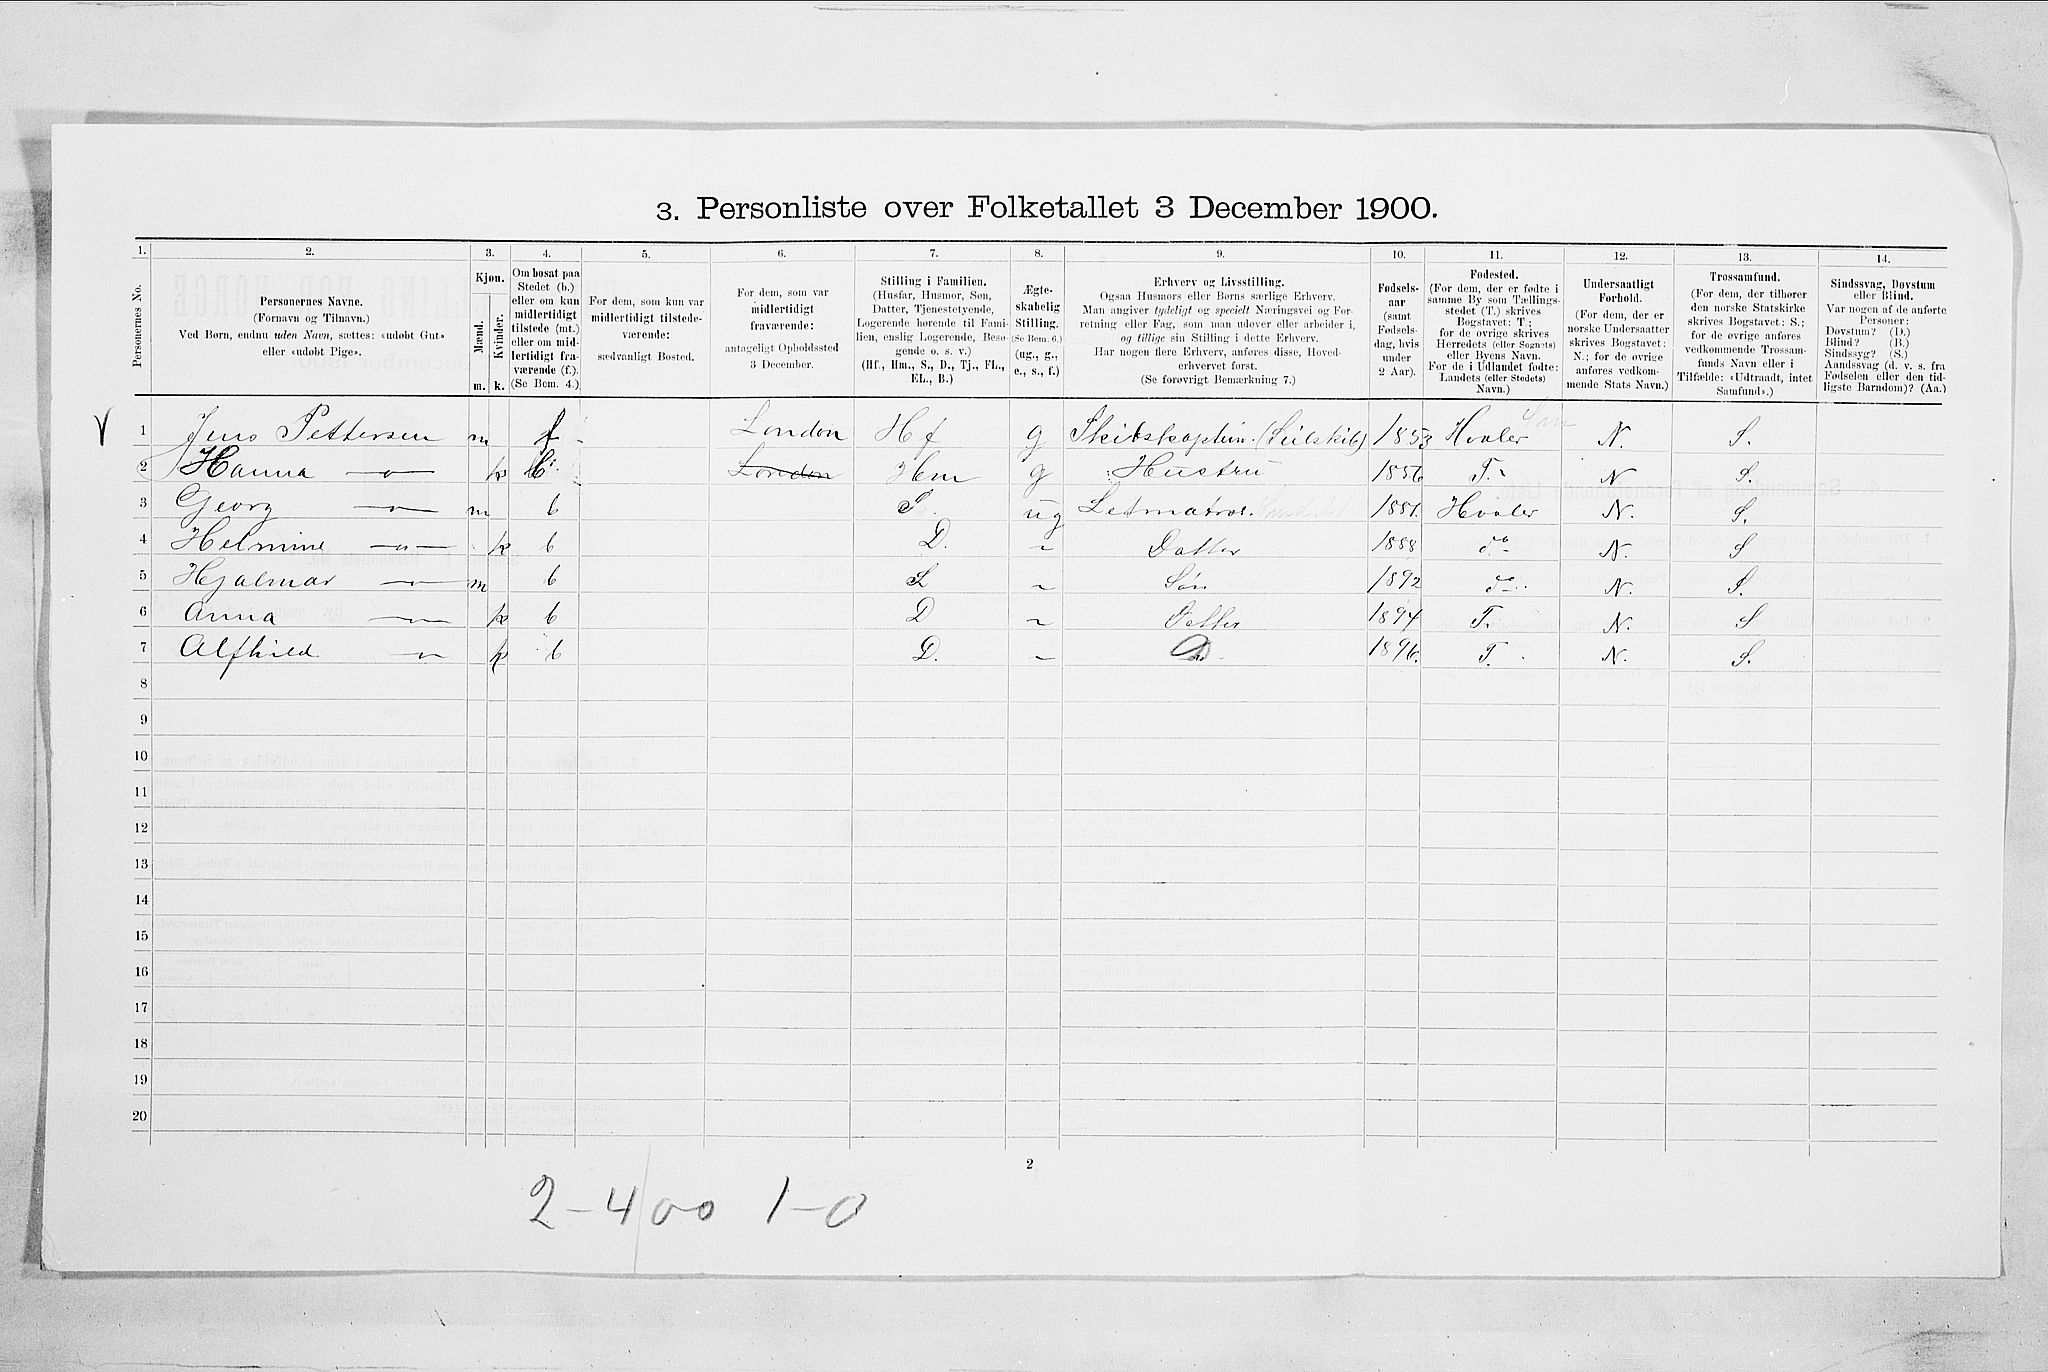 3. Personliste over Folketallet 3 December 1900.
1. 2. 3. 4. 5. 6. 7. 8. 9. 10. 11. 12. 13. 14.
Personernes No.
Personernes Navne.
(Fornavn og Tilnavn.)
Ved Børn, endnu uden Navn, sættes: «udøbt Gut»
eller «udøbt Pige».
Kjøn.
Mænd. Kvinder.
m. k.
Om bosat paa
Stedet (b.)
eller om kun
midlertidigt
tilstede (mt.)
eller om mid-
lertidigt fra-
værende (f.).
(Se Bem. 4.)
For dem, som kun var
midlertidigt tilstede-
værende:
sædvanligt Bosted.
For dem, som var
midlertidigt
fraværende:
antageligt Opholdssted
3 December.
Stilling i Familien.
(Husfar, Husmor, Søn,
Datter, Tjenestetyende,
Logerende hørende til Fami-
lien, enslig Logerende, Besø-
gende o. s. v.)
(Hf., Hm., S., D., Tj., FL.,
EL., B.)
Ægte-
skabelig
Stilling.
(Se Bem. 6.)
(ug., g.,
e., s., f.)
Erhverv og Livsstilling.
Ogsaa Husmors eller Børns særlige Erhverv.
Man angiver tydeligt og specielt Næringsvei og For-
retning eller Fag, som man udøver eller arbeider i,
og tillige sin Stilling i dette Erhverv.
Har nogen flere Erhverv, anføres disse, Hoved-
erhvervet først.
(Se forøvrigt Bemærkning 7.)
Fødsels-
aar
(samt
Fødsels-
dag, hvis
under
2 Aar).
Fødested.
(For dem, der er fødte i
samme By som Tællings-
stedet (T.) skrives
Bogstavet: T.;
for de øvrige skrives
Herredets (eller Sognets)
eller Byens Navn.
For de i Udlandet fødte:
Landets (eller Stedets)
Navn.)
Undersaatligt
Forhold.
(For dem, der er
norske Undersaatter
skrives Bogstavet:
N.; for de øvrige
anføres vedkom-
mende Stats Navn.)
Trossamfund.
(For dem, der tilhører
den norske Statskirke
skrives Bogstavet: S.;
for de øvrige anføres
vedkommende Trossam-
funds Navn eller i
Tilfælde: «Udtraadt, intet
Samfund».)
Sindssvag, Døvstum
eller Blind.
Var nogen af de anførte
Personer:
Døvstum? (D.)
Blind? (B.)
Sindssyg? (S.)
Aandssvag (d. v. s. fra
Fødselen eller den tid-
ligste Barndom)? (Aa.)
V 1 Jens Pettersen m f London Hf g Skibskaptein (Seilskib) 1853 Hvaler N. S.
2 Hanna —"— k b London Hm g Hustru 1856 T. N S.
3 Georg —"— m b S. ug Letmatros. 1881. Hvaler N. S.
4 Helmine —"— k b D. " Datter 1888 do N. S
5 Hjalmar —"— m b S " Søn 1892 do N. S.
6 Anna —"— k b D " Datter 1894 T. N. S
7 Alfhild —"— k b D. " D 1896. T. N. S.
8
9
10
11
12
13
14
15
16
17
18
19
20
2
2-4 00 1-0